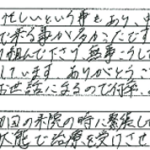 忙しいという事もあり、
で来る事が多かったです
り組んで下さり無事こうして
しています。ありがとうご
お世話になるので何卒、
回の来院の時に緊張し
状態で治療を受けさせ